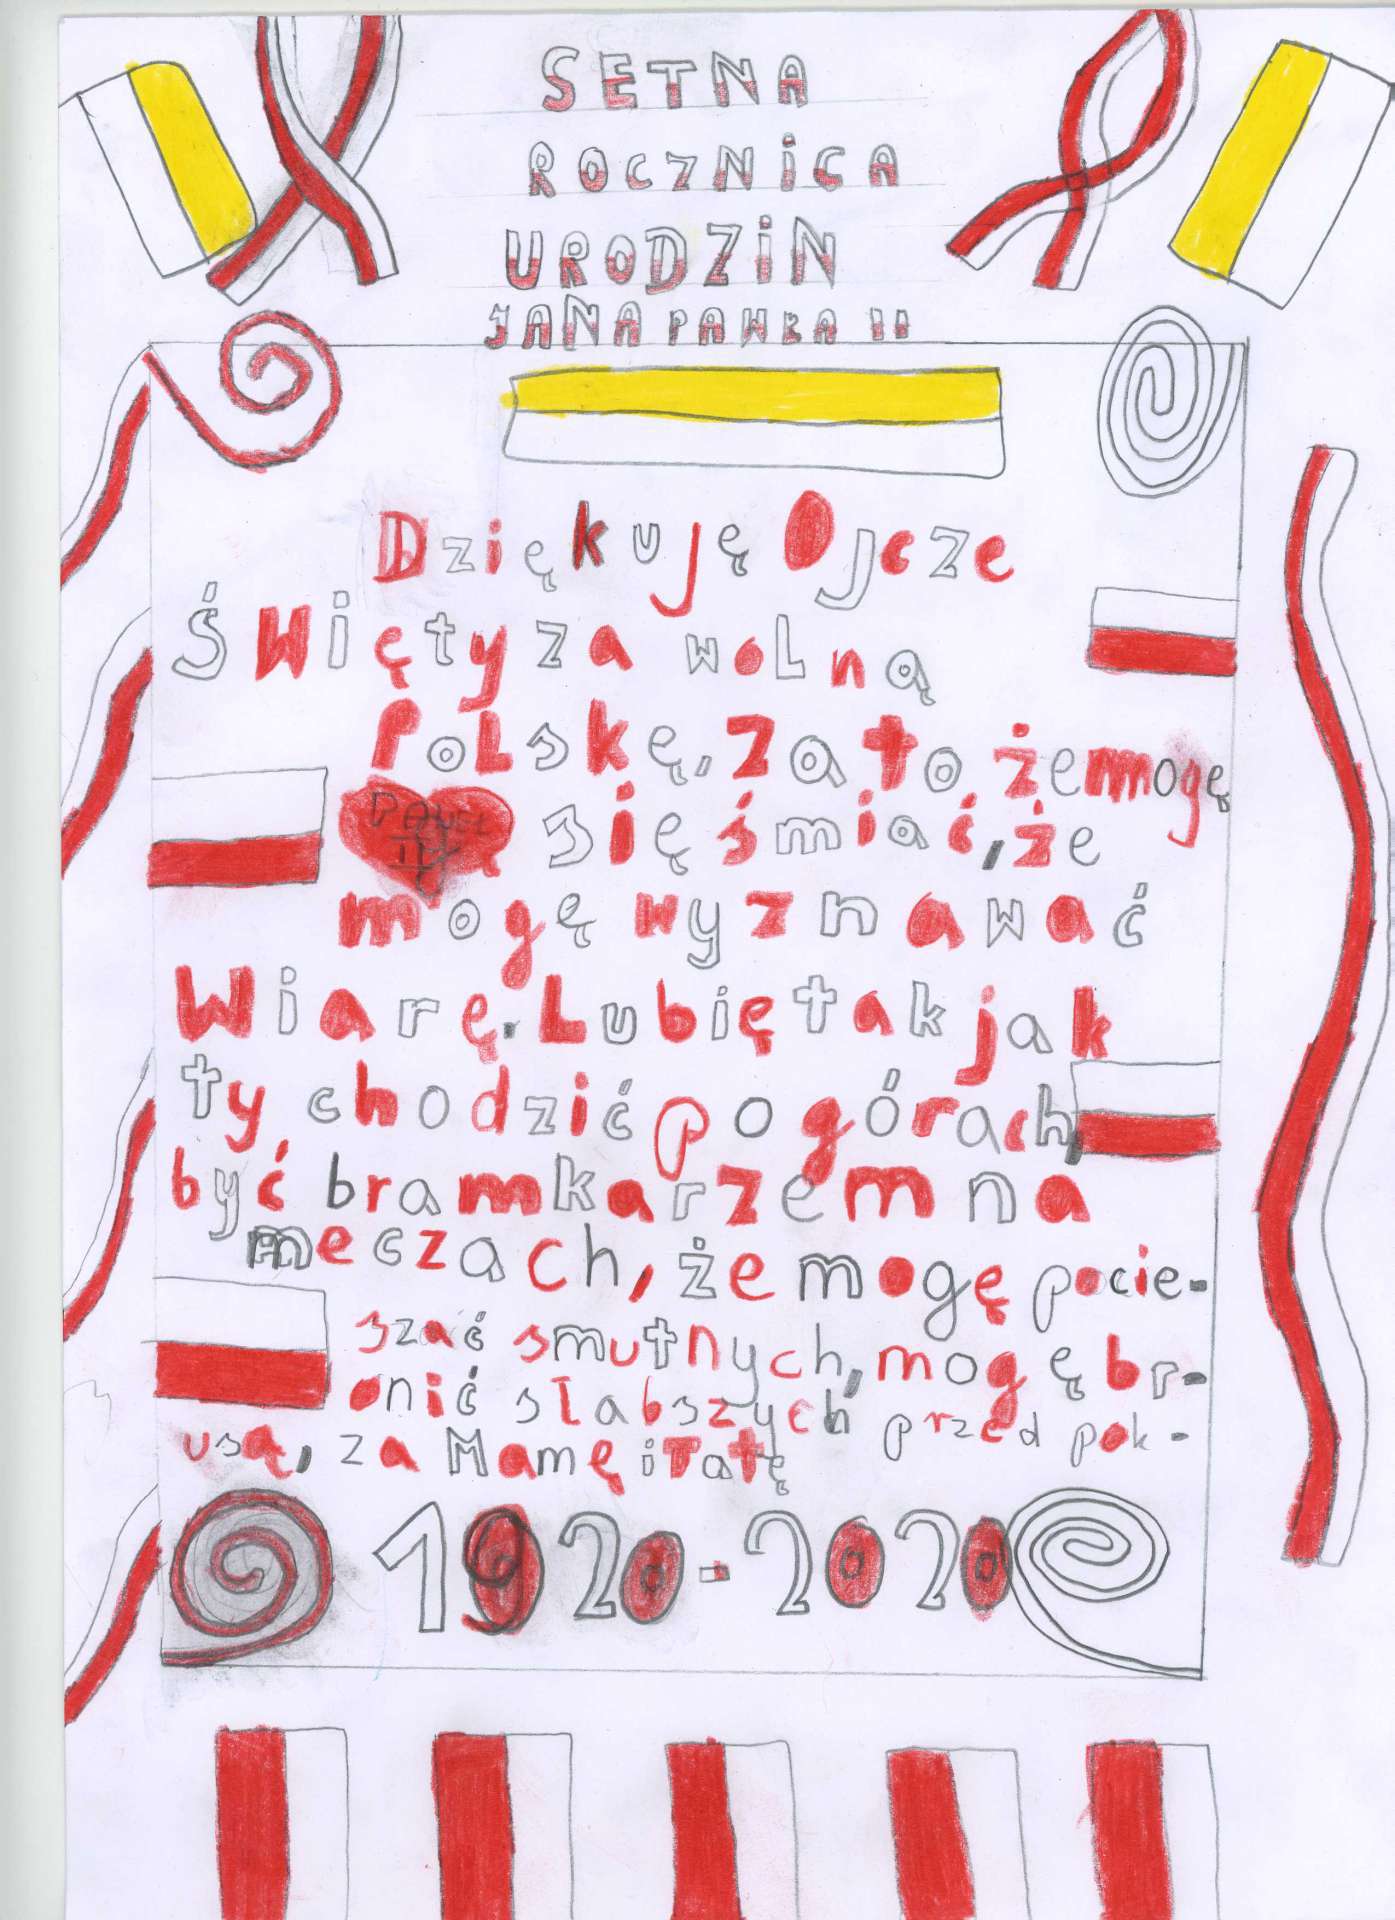 SETNA
ROCZNiCA
URODZiN
JANA PAWŁA II
Dziękuję Ojcze
Święty za wolną
Polskę, za to że mogę
się śmiać, że
mogę wyznawać
Wiarę. Lubię tak jak
ty chodzić po górach,
być bramkarzem na
meczach, że mogę pocie-
szać smutnych, mogę br-
onić słabszych przed pok-
usą, za Mamę i Tatę
1920-2020